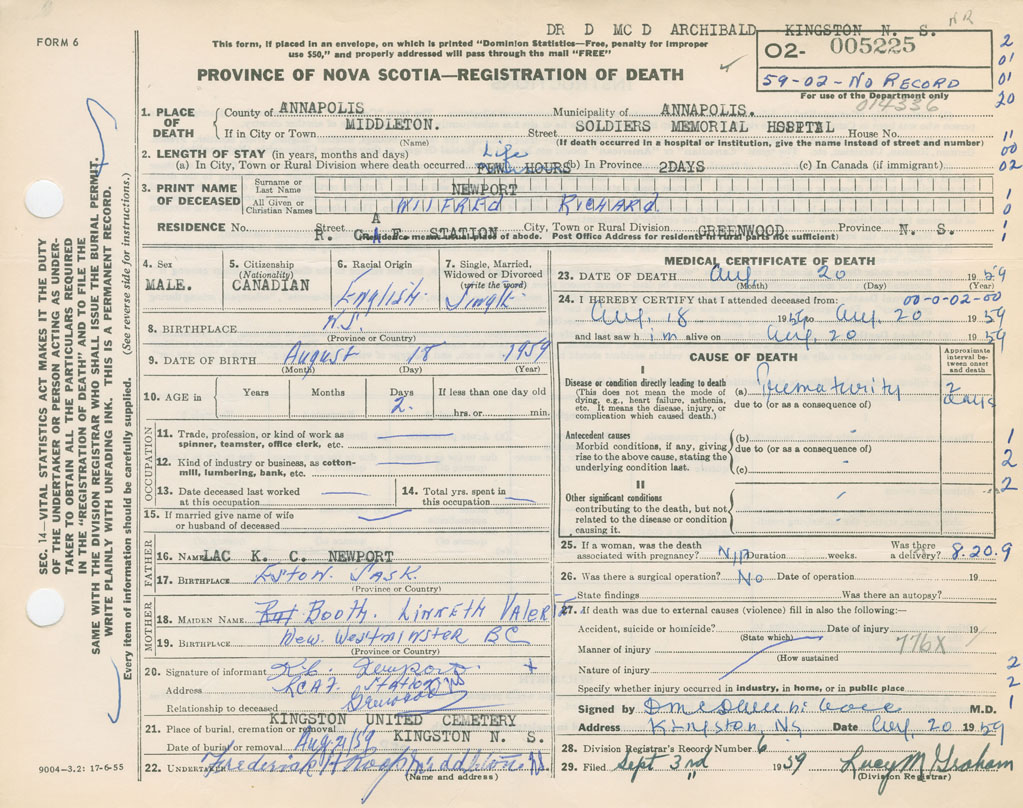 DR D MC D ARCHIBALD KINGSTON N. S. NR
FORM 6
This form, if placed in an envelope, on which is printed "Dominion Statistics—Free, penalty for improper
use $50," and properly addressed will pass through the mail "FREE"
O2- 005225
59-02-NO RECORD
For use of the Department only
014336
PROVINCE OF NOVA SCOTIA—REGISTRATION OF DEATH
2
01
01
20
11
00
02
1
0
1
1
1. PLACE OF DEATH County of ANNAPOLIS Municipality of ANNAPOLIS.
If in City or Town MIDDLETON. Street SOLDIERS MEMORIAL HOSPITAL House No.
(Name) (If death occurred in a hospital or institution, give the name instead of street and number)
2. LENGTH OF STAY (in years, months and days) Life
(a) In City, Town or Rural Division where death occurred FEW HOURS (b) In Province 2DAYS (c) In Canada (if immigrant)
3. PRINT NAME OF DECEASED Surname or Last Name NEWPORT
All Given or Christian Names WILFRED RICHARD.
RESIDENCE No. Street R. C. A F. STATION City, Town or Rural Division GREENWOOD Province N. S.
Residence means usual place of abode. Post Office Address for residents in rural parts not sufficient)
4. Sex MALE.
5. Citizenship (Nationality) CANADIAN
6. Racial Origin English.
7. Single, Married, Widowed or Divorced (write the word) Single.
8. BIRTHPLACE N.S.
(Province or Country)
9. DATE OF BIRTH August 18 1959
(Month) (Day) (Year)
10. AGE in Years Months Days 2. If less than one day old
hrs. or min.
OCCUPATION
11. Trade, profession, or kind of work as
spinner, teamster, office clerk, etc.
12. Kind of industry or business, as cotton-
mill, lumbering, bank, etc.
13. Date deceased last worked
at this occupation
14. Total yrs. spent in
this occupation
15. If married give name of wife
or husband of deceased
FATHER
16. NAME LAC K. C. NEWPORT
17. BIRTHPLACE ESTON. SASK.
(Province or Country)
MOTHER
18. MAIDEN NAME BOOTH. LINNETH VALERIE
19. BIRTHPLACE New. Westminster BC
(Province or Country)
20. Signature of informant K.C. Newport. +
Address RCAF. Station NS
Relationship to deceased Greenwood
21. Place of burial, cremation or removal KINGSTON UNITED CEMETERY
KINGSTON N. S.
Date of burial or removal Aug 21/59
22. UNDERTAKER Frederick A Roop Middleton NS
(Name and address)
9004-3.2: 17-6-55
MEDICAL CERTIFICATE OF DEATH
23. DATE OF DEATH Aug 20 1959
(Month) (Day) (Year)
24. I HEREBY CERTIFY that I attended deceased from: 00-0-02-00
Aug. 18 1959 to Aug. 20 1959
and last saw him alive on Aug. 20 1959
CAUSE OF DEATH
Approximate interval between onset and death
I
Disease or condition directly leading to death (a) Prematurity 2 days
(This does not mean the mode of
dying, e.g., heart failure, asthenia,
etc. It means the disease, injury, or
complication which caused death.)
due to (or as a consequence of)
Antecedent causes (b)
Morbid conditions, if any, giving
rise to the above cause, stating the
underlying condition last.
due to (or as a consequence of)
(c)
1
2
2
II
Other significant conditions
contributing to the death, but not
related to the disease or condition
causing it.
25. If a woman, was the death
associated with pregnancy? Duration weeks. Was there
a delivery? 8.20.9
26. Was there a surgical operation? No Date of operation 19
State findings Was there an autopsy?
27. If death was due to external causes (violence) fill in also the following:—
Accident, suicide or homicide? Date of injury 19
(State which)
Manner of injury 776X
(How sustained
Nature of injury
2
2
Specify whether injury occurred in industry, in home, or in public place
Signed by M.D. 1
Address Kingston, NS Date Aug. 20 1959
28. Division Registrar's Record Number 6
29. Filed Sept 3rd 1959 Lucy M Graham
(Division Registrar)
SEC. 14—VITAL STATISTICS ACT MAKES IT THE DUTY
OF THE UNDERTAKER OR PERSON ACTING AS UNDER-
TAKER TO OBTAIN ALL THE PARTICULARS REQUIRED
IN THE "REGISTRATION OF DEATH" AND TO FILE THE
SAME WITH THE DIVISION REGISTRAR WHO SHALL ISSUE THE BURIAL PERMIT.
WRITE PLAINLY WITH UNFADING INK. THIS IS A PERMANENT RECORD.
Every item of information should be carefully supplied. (See reverse side for instructions.)